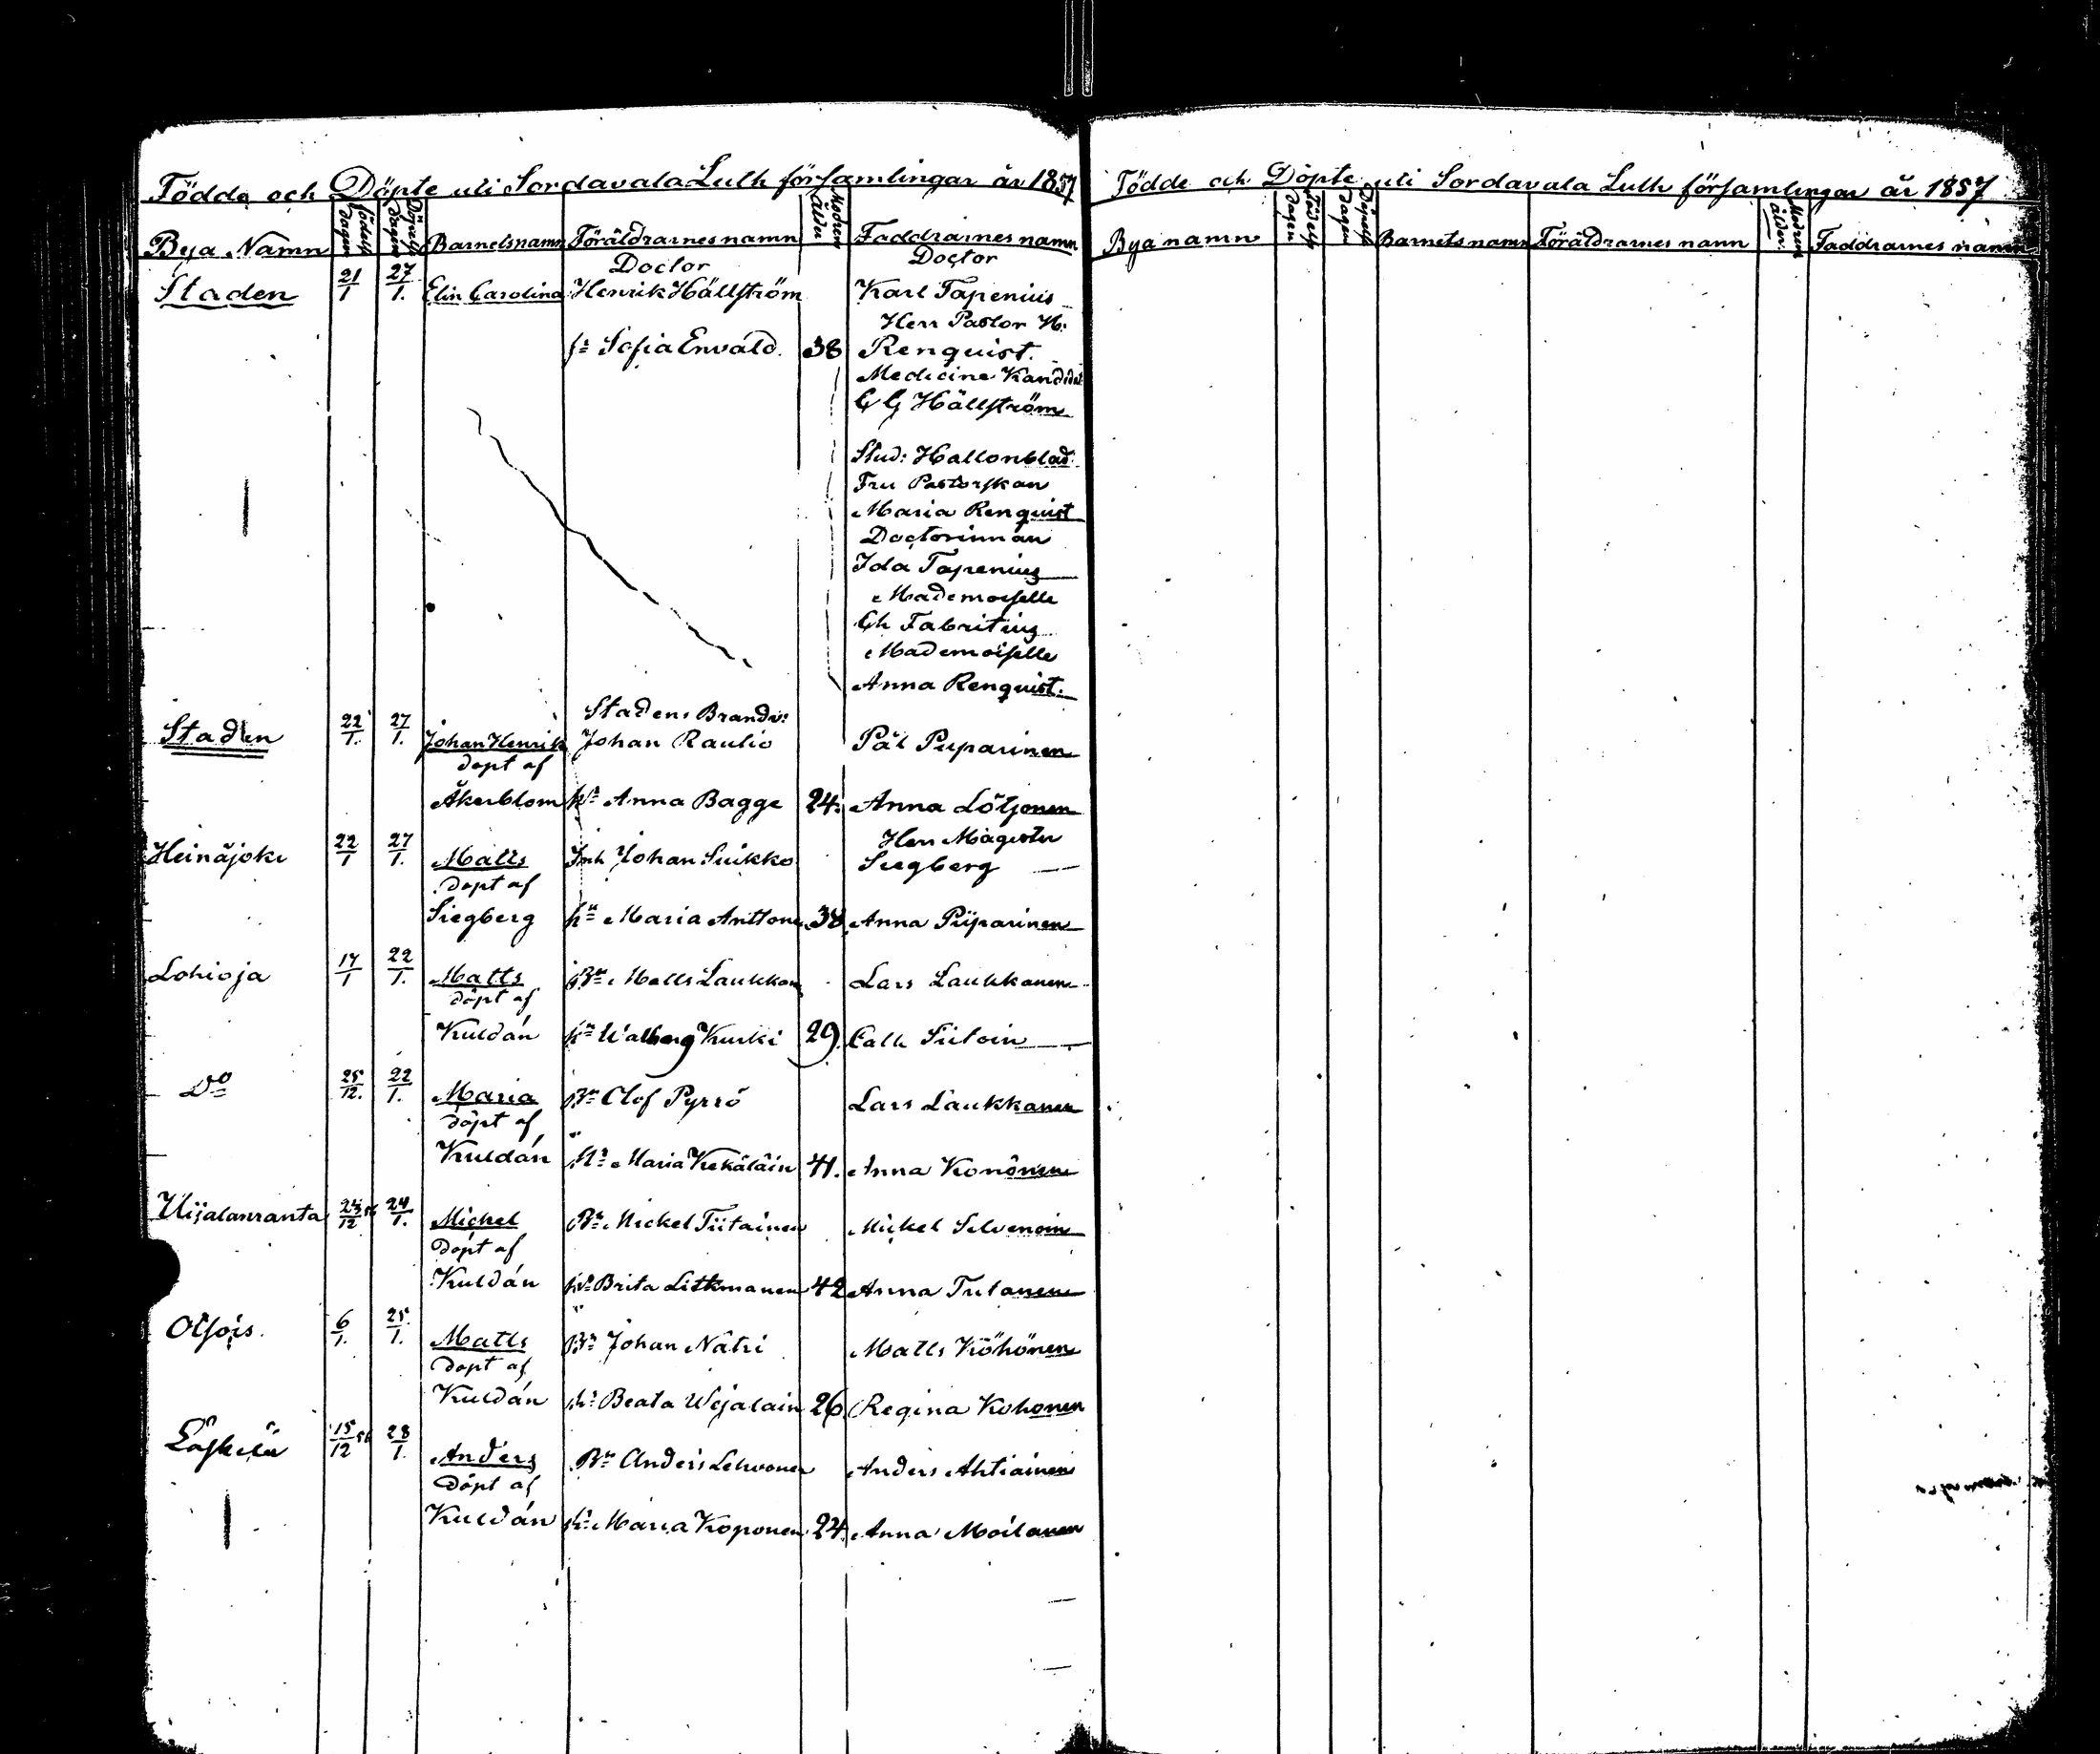 Födde och Döpte uti Sordavala Luth församlingar år 1857
Bya Namn Födelse dagen Döpnelse dagen Barnetsnamn Föräldrarnesnamn Modrens ålder Faddrarnesnamn
Doctor Doctor
Staden 21/1 27/1. Elin Carolina Henrik Hällström Karl Tapenius
Herr Pastor H:
hu Sofia Envald. 38 Renquist.
Medicine Kandidat
G G Hällström
Stud: Hallonblad
Fru Pastorskan
Maria Renquist
Doctorinnan
Ida Tapenius
Mademoiselle
Ch Fabritius
Mademoiselle
Anna Renquist.
Stadens Brandv:
Staden 22/1. 27/1. Johan Henrik Johan Raulio Pål Piiparinen
döpt af
Åkerblom hu Anna Bagge 24. Anna Lötjonen
Herr Magister
Heinäjoki 22/1 27/1. Matts Inh Johan Suikko Siegberg
döpt af
Siegberg hu Maria Anttone 38 Anna Piiparinen
Lohioja 17/1 22/1. Matts Bn Matts Laukkan Lars Laukkanen
döpt af
Kuldán hu Walborg Kurki 29. Cath Siitoin
Do 25/12. 22/1. Maria Bn Olof Pyrrö Lars Laukkanen
döpt af
Kuldán hu Maria Kekäläin 41. Anna Konönen
Uijalanranta 24/12 56 24/1. Michel Bn Mickel Tiitainen Mickel Silvenoin
döpt af
Kuldán hu Brita Litkmanen 42 Anna Tulanen
Otsois. 6/1. 25/1. Matts Bn Johan Nätri Matts Köhönen
döpt af
Kuldán hu Beata Wejalain 26. Regina Kohonen
Läskelä 15/12 56 28/1. Anders Bn Anders Lehvonen Anders Ahtiainen
döpt af
Kuldán hu Maria Koponen 24. Anna Moilanen
Födde och Döpte uti Sordavala Luth församlingar år 1857
Bya namn Födelse dagen Döpnelse dagen Barnets namn Föräldrarnes namn Modrens ålder. Faddrarnes namn